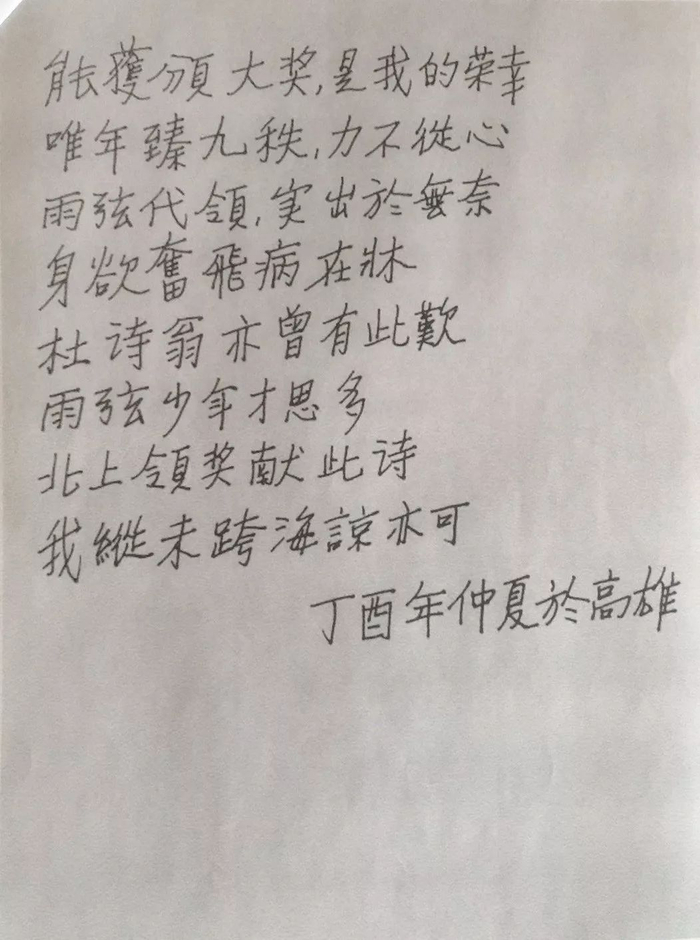 能獲頒大奖,是我的荣幸
唯年臻九秩,力不從心
雨弦代領,実出於無奈
身欲奮飛病在牀
杜诗翁亦曾有此歎
雨弦少年才思多
北上領奖献此诗
我縱未跨海諒亦可
丁酉年仲夏於高雄